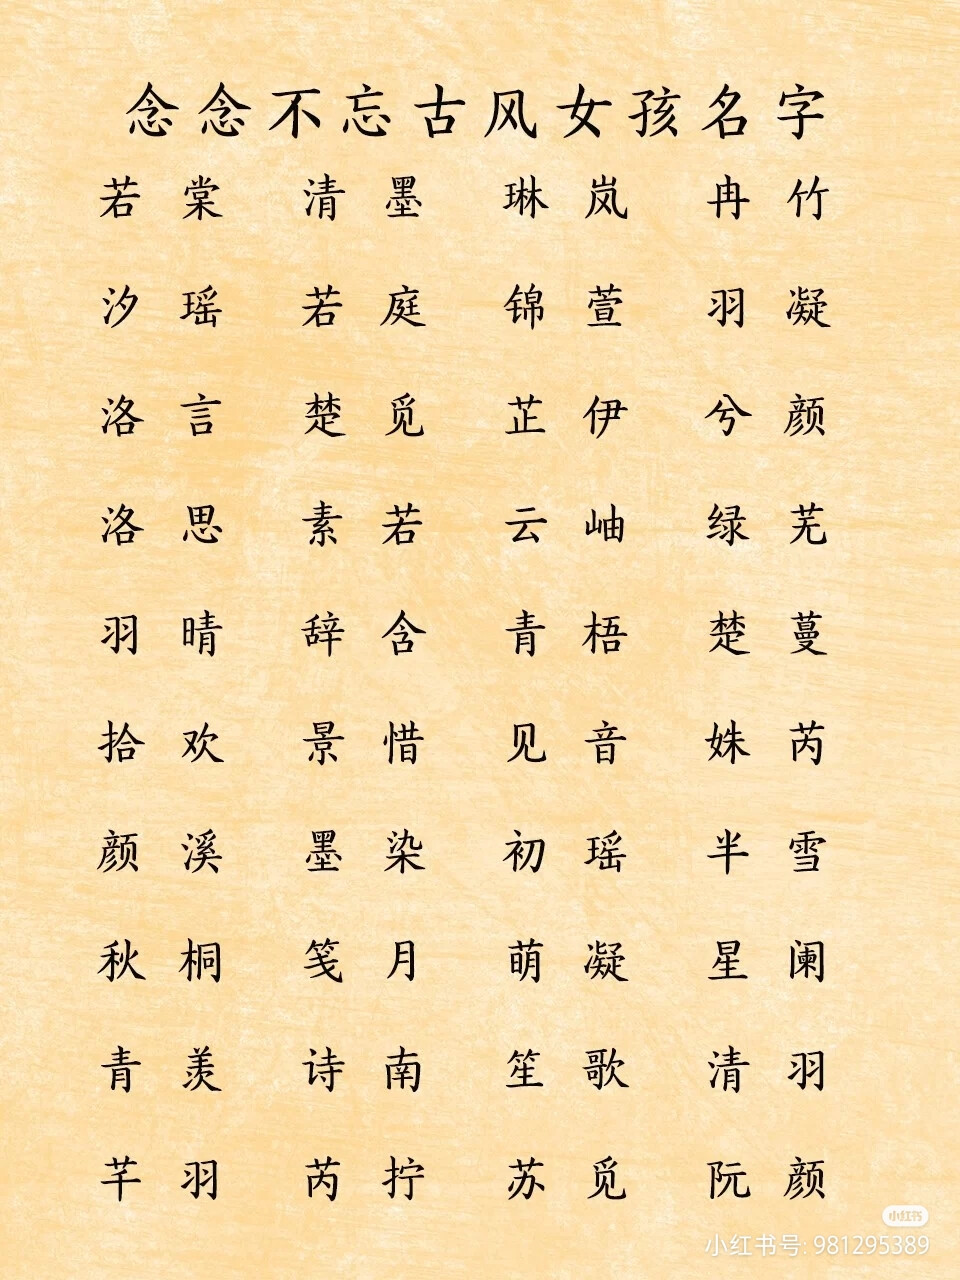 念念不忘古风女孩名字
若棠 清墨 琳岚 冉竹
汐瑶 若庭 锦萱 羽凝
洛言 楚觅 芷伊 兮颜
洛思 素若 云岫 绿芜
羽晴 辞含 青梧 楚蔓
拾欢 景惜 见音 姝芮
颜溪 墨染 初瑶 半雪
秋桐 笺月 萌凝 星阑
青羡 诗南 笙歌 清羽
芊羽 芮拧 苏觅 阮颜
小红书
小红书号: 981295389